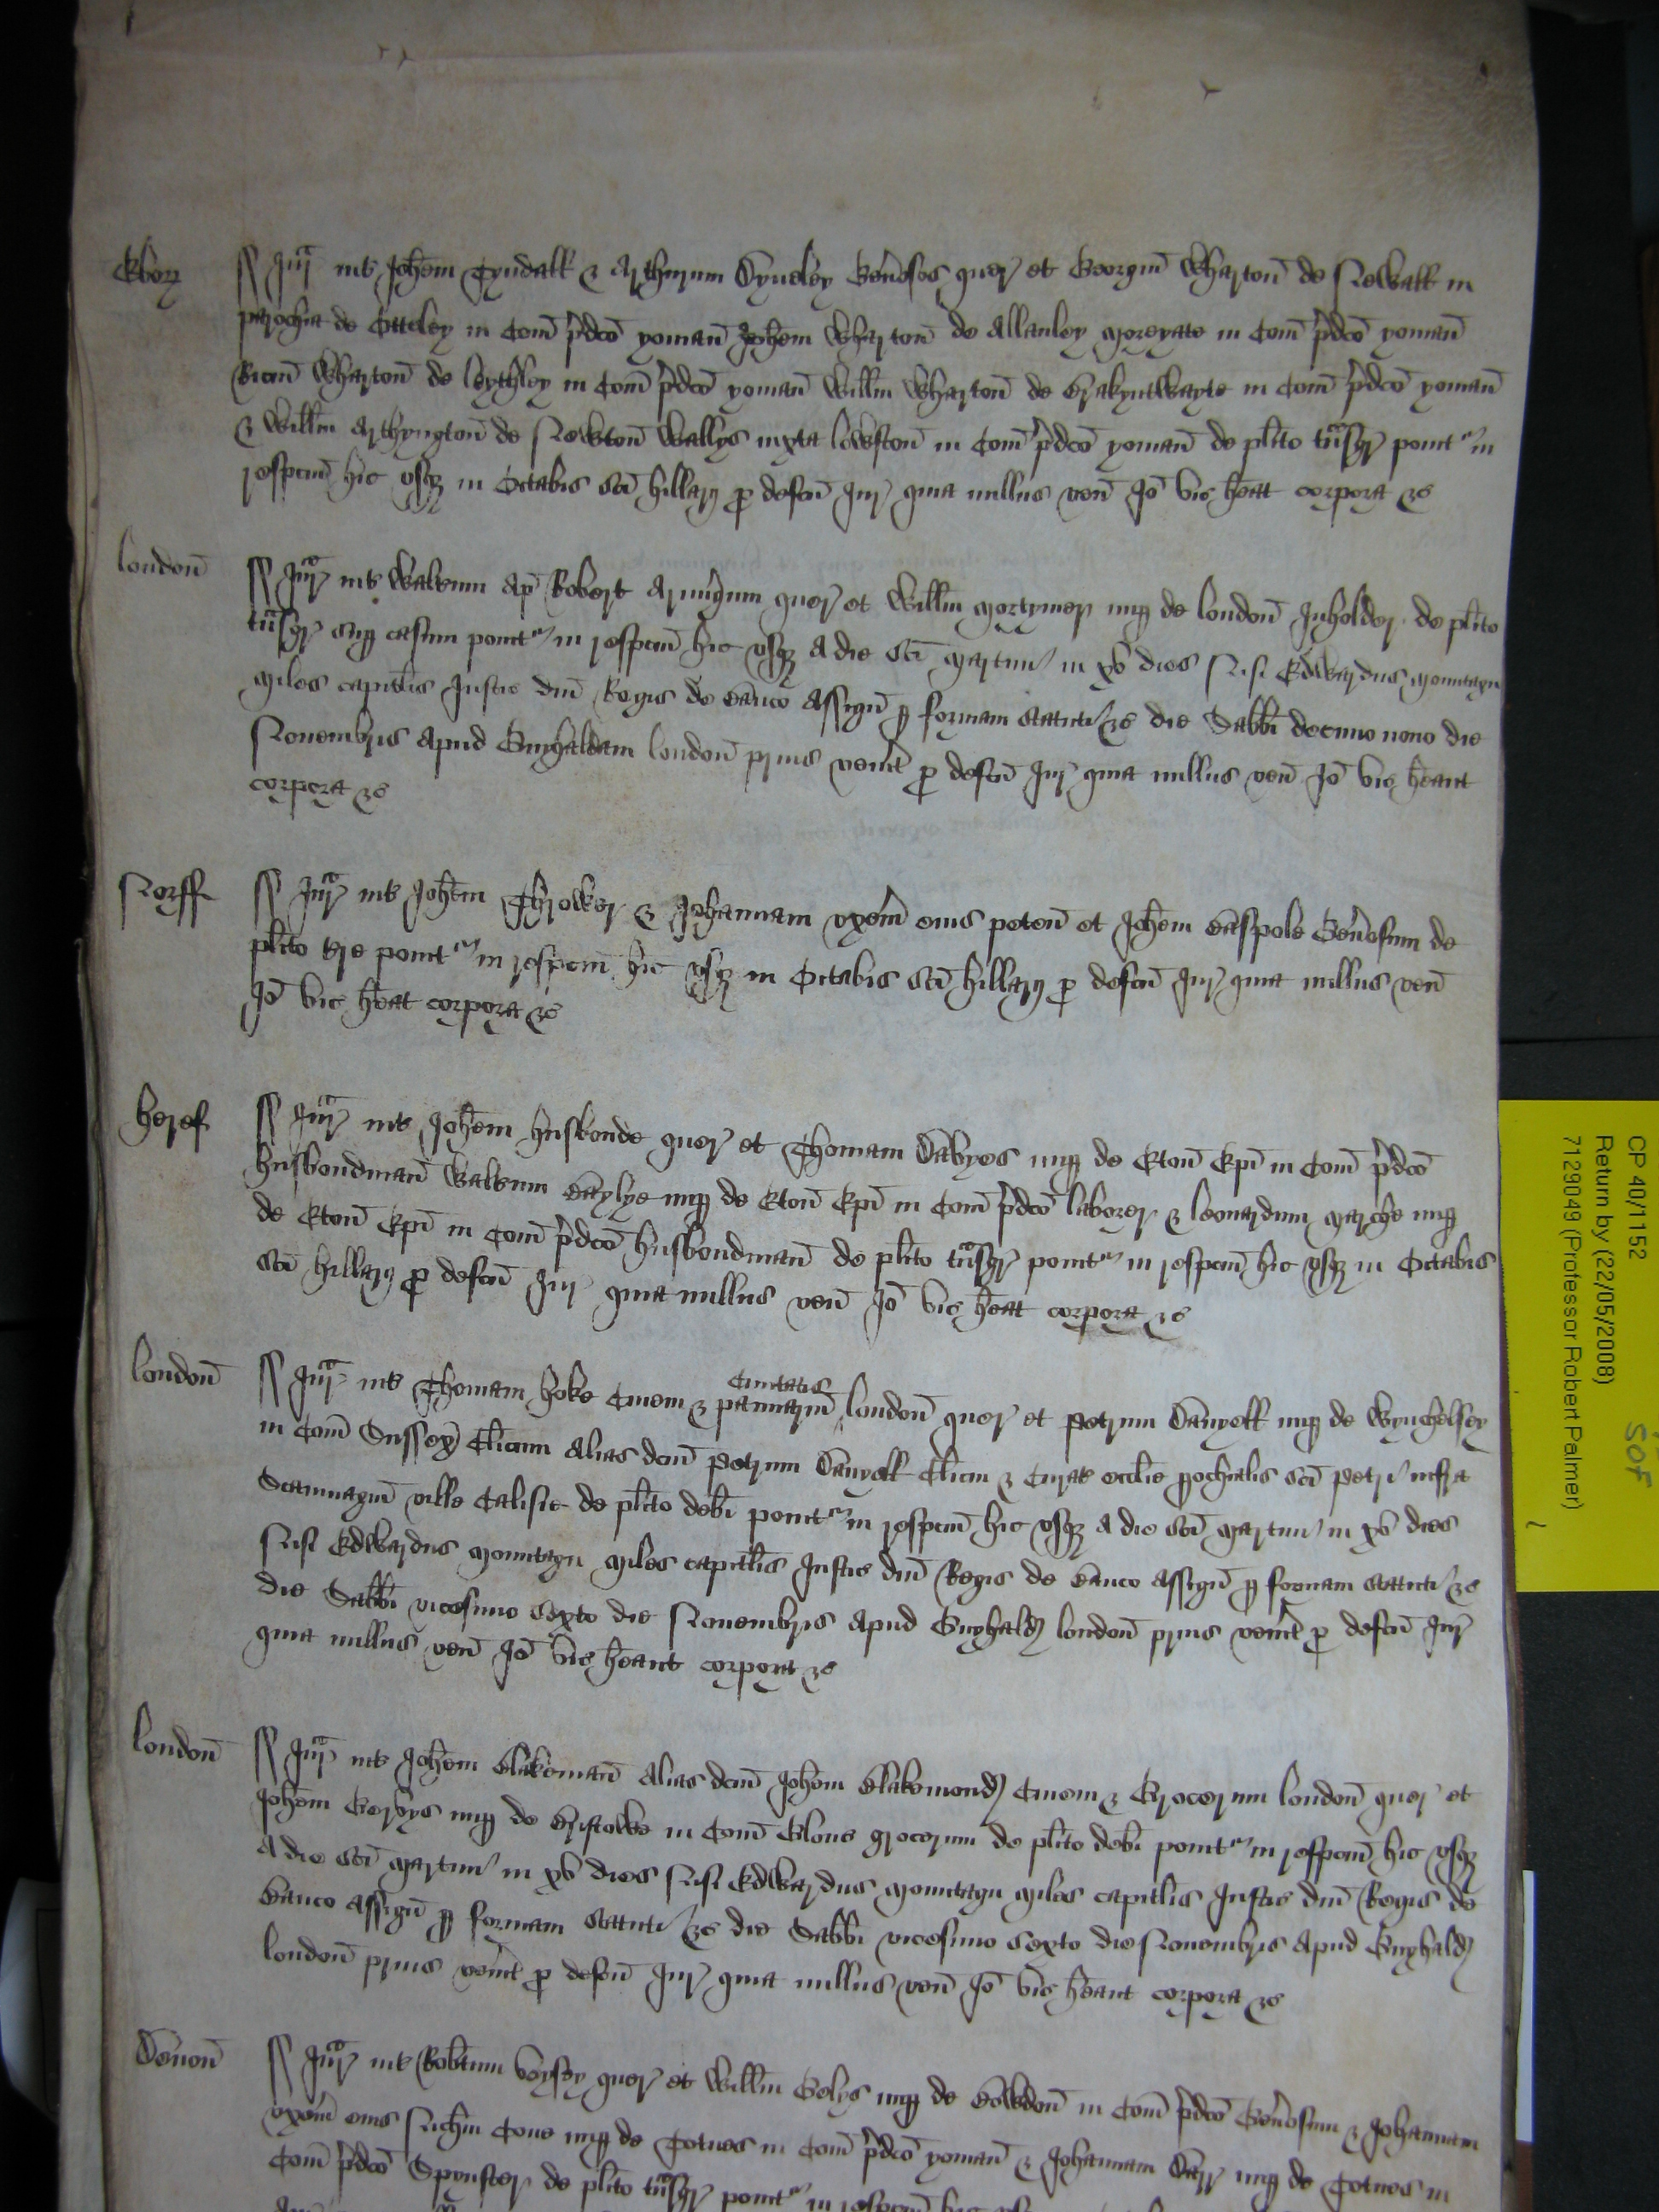 Ebor̄ Jur̄ int̄ Joh̄em Tyndall & Arthurum Dyneley Gen̄osos quer̄ et Georgiū Whartoñ de Newall in
parochia de Otteley in Com̄ p̄dc̄o yomañ Joh̄em Whartoñ de Allanley yomañ in Com̄ p̄dc̄o yomañ
Ric̄m Whartoñ de leythley in Com̄ p̄dc̄o yomañ Willm̄ Whartoñ de Brakynthwayte in Com̄ p̄dc̄o yomañ
& Willm̄ Arthyngtoñ de Newtoñ Wallys iuxta in Com̄ p̄dc̄o yomañ de pl̄ito tn̄sgr̄ ponit̄ʳ in
respc̄m hic usq̄ in Octabis sc̄i hillarij p̄ defc̄u Jur̄ quia nullus veñ Jo͞ vic̄ h̄eat corpora &c
londoñ Jur̄ int̄ Walt̄um Ap Robert Armig̃um quer̄ et Willm̄ Mortymer nup̄ de londoñ Inholder de pl̄ito
tn̄sgr̄ sup̄ casum ponit̄ʳ in respc̄m hic usq̄ A die sc̄i Martini in xv dies Nisi Edwardus Mountagu
Miles capitl̄is Justic̄ dn̄i Regis de Banco Assign̄ p̄ formam statuti &c die Sabb̄i decimo nono die
Novembris apud Guyhaldam londoñ prius ven̄it p̄ defc̄u Jur̄ quia nullus veñ Jo͞ vic̄ h̄eant
corpora &c
Norff Jur̄ int̄ Joh̄em Throwker & Johannam uxem̄ eius peteñ et Joh̄em Baspole Gen̄osum de
pl̄ito tr̄e ponit̄ʳ in respc̄m hic usq̄ in Octabis sc̄i hillarij p̄ defc̄u Jur̄ quia nullus veñ
Jo͞ vic̄ h̄eat corpora &c
heref Jur̄ int̄ Joh̄em husbonde quer̄ et Thomam Dabyes nup̄ de Etoñ Ep̄i in Com̄ p̄dc̄o
husbondmañ Walt̄um Baylye nup̄ de Etoñ Ep̄i in Com̄ p̄dc̄o laborer & leonardum Marche nup̄
de Etoñ Ep̄i in Com̄ p̄dc̄o husbondmañ de pl̄ito tn̄sgr̄ ponit̄ʳ in respc̄m hic usq̄ in Octabis
sc̄i hillarij p̄ defc̄u Jur̄ quia nullus veñ Jo͞ vic̄ h̄eat corpora &c
Civitatis
londoñ Jur̄ int̄ Thomam hoke Civem & pannariū londoñ quer̄ et Petrum Danyell nup̄ de Wynchelsey
in Com̄ Sussex̄ Cl̄icum Alias dc̄m Petrum Danyell Cl̄icm & Curat̄ eccl̄ie p̄ochialis sc̄i Petri infra
Scannagiū ville Calisie de pl̄ito deb̄i ponit̄ʳ in respc̄m hic usq̄ A die sc̄i Martini in xv dies
Nisi Edwardus Mountagu Miles capitl̄is Justic̄ dn̄i Regis de Banco Assign̄ p̄ formam statuti &c
die Sabb̄i vicesimo sexto die Novembris apud Guyhald londoñ prius ven̄it p̄ defc̄u Jur̄
quia nullus veñ Jo͞ vic̄ h̄eant corpora &c
londoñ Jur̄ int̄ Joh̄em Blakemañ Alias dc̄m Joh̄em Blakemond Civem & Grocerum londoñ quer̄ et
Joh̄em Gerbys nup̄ de Bristowe in Com̄ Glouc̄ grocerum de pl̄ito deb̄i ponit̄ʳ in respc̄m hic usq̄
A die sc̄i Martini in xv dies Nisi Edwardus Mountagu Miles capitl̄is Justic̄ dn̄i Regis de
Banco Assign̄ p̄ formam statuti &c die Sabb̄i vicesimo sexto die Novembris apud Guyhald
londoñ prius ven̄it p̄ defc̄u Jur̄ quia nullus veñ Jo͞ vic̄ h̄eant corpora &c
Devoñ Jur̄ int̄ Rob̄tum Veysey quer̄ et Willm̄ Gelys nup̄ de Bowdoñ in Com̄ p̄dc̄o Gen̄osum & Johannam
uxem̄ eius Nich̄m Cove nup̄ de Totnes in Com̄ p̄dc̄o yomañ & Johannam Darr nup̄ de Totnes in
Com̄ p̄dc̄o Spynster de pl̄ito tn̄sgr̄ ponit̄ʳ in respc̄m hic
CP 40/1152
Return by (22/05/2008)
7129049 (Professor Robert Palmer)
SOF